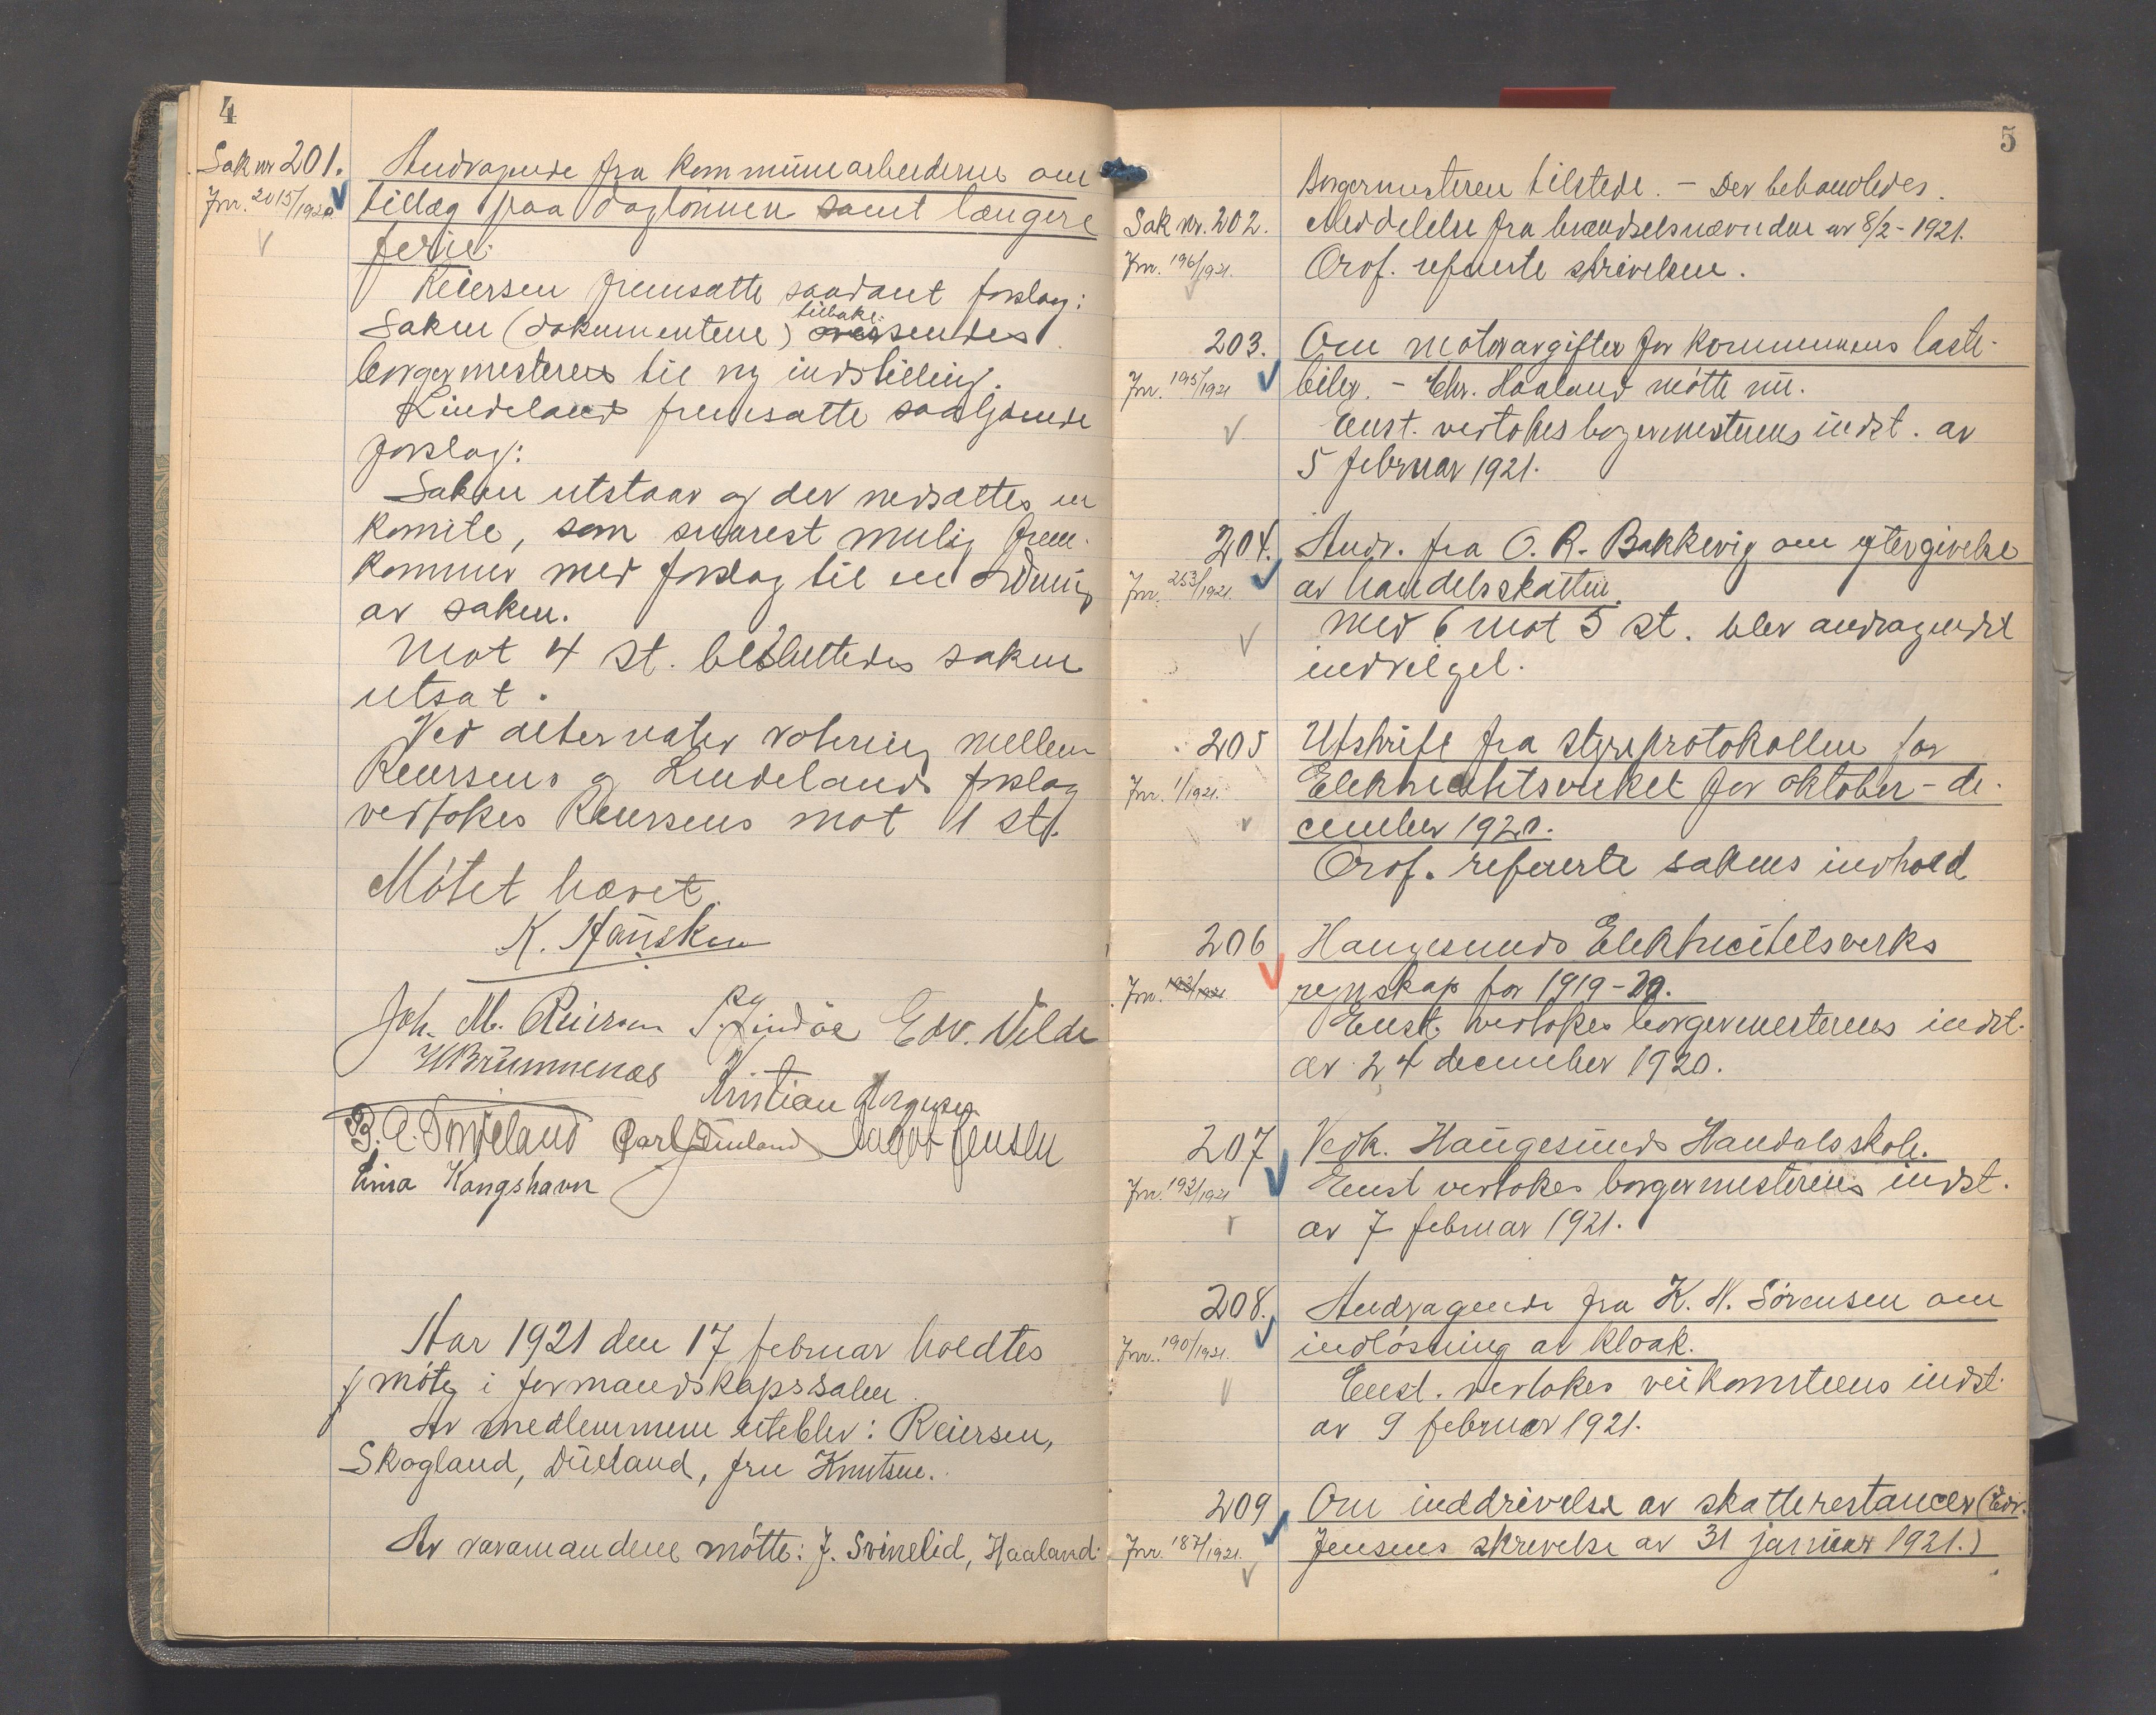 4
Sak nr 201. Andragende fra kommunearbeiderne om
Jnr. 2015/1920. tillæg paa daglönnen samt længere
ferie.
Reiersen fremsatte saadant forslag:
tilbake
Saken (dokumentene) oversendes
borgermesteren til ny indstilling.
Lindeland fremsatte saalydende
forslag:
Saken utstaar og der nedsættes en
komite, som snarest mulig frem-
kommer med forslag til en ordning
av saken.
Mot 4 st. besluttedes saken
utsat.
Ved alternativ votering mellem
Reiersens og Lindelands forslag
vedtokes Reiersens mot 1 st.
Mötet hævet.
K. Hausken
Joh. M. Reiersen Edv. Velde
H Brummenæs Kristian
Jakob Jensen
Lina Kongshavn
Aar 1921 den 17 februar holdtes
möte i formandskapssalen.
Av medlemmene uteblev: Reiersen,
Skogland, Dueland, fru Knutsen.
Av varamændene mötte: J. Svinelid, Haaland.
5
Borgermesteren tilstede. - Der behandledes.
Sak nr. 202. Meddelelse fra brændselsnævnden av 8/2 - 1921.
Jnr. 196/1921. Ordf. refererte skrivelsen.
203. Om motoravgifter for kommunens laste-
Jnr. 195/1921 biler. - Chr. Haaland mötte nu.
Enst. vedtokes borgermesterens indst. av
5 februar 1921.
204. Andr. fra O. R. Bakkevig om eftergivelse
Jnr. 253/1921. av handelsskatten.
Med 6 mot 5 st. blev andragendet
indvilget.
205 Utskrift fra styreprotokollen for
Jnr. 1/1921. Elektricitetsverket for oktober - de-
cember 1920.
Ordf. refererte sakens indhold
206 Haugesunds Elektricitetsverks
Jnr. 193/1921 regnskap for 1919-20.
Enst. vedtokes borgermesterens indst.
av 24 december 1920.
207 Vedk. Haugesunds Handelsskole.
Jnr. 192/1921 Enst vedtokes borgermesterens indst.
av 7 februar 1921.
208. Andragende fra K. H. Sörensen om
Jnr. 190/1921. indlösning av kloak.
Enst. vedtokes veikomiteens indst.
av 9 februar 1921.
209 Om inddrivelse av skatterestancer (Edv.
Jnr. 187/1921. Jensens skrivelse av 31 januar 1921.)